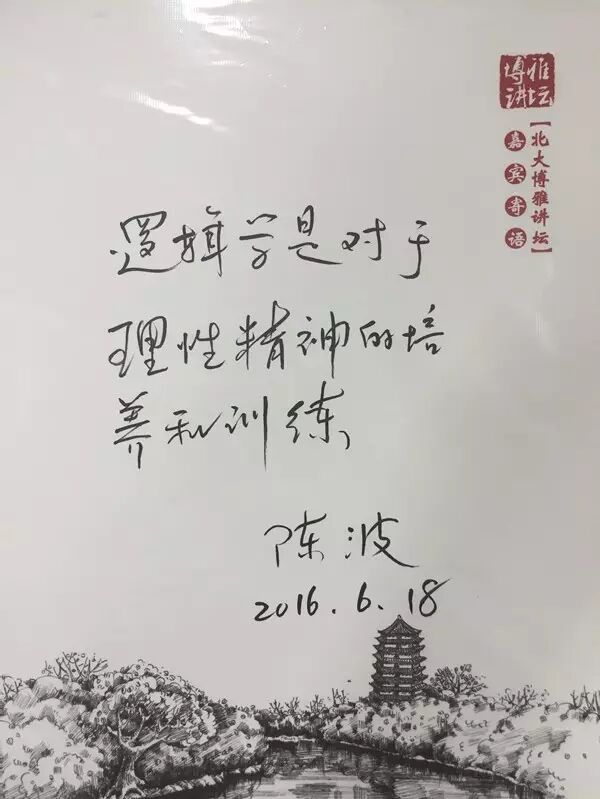 博雅
讲坛
【北大博雅讲坛】
嘉宾寄语
逻辑学是对于
理性精神的培
养和训练
陈波
2016.6.18